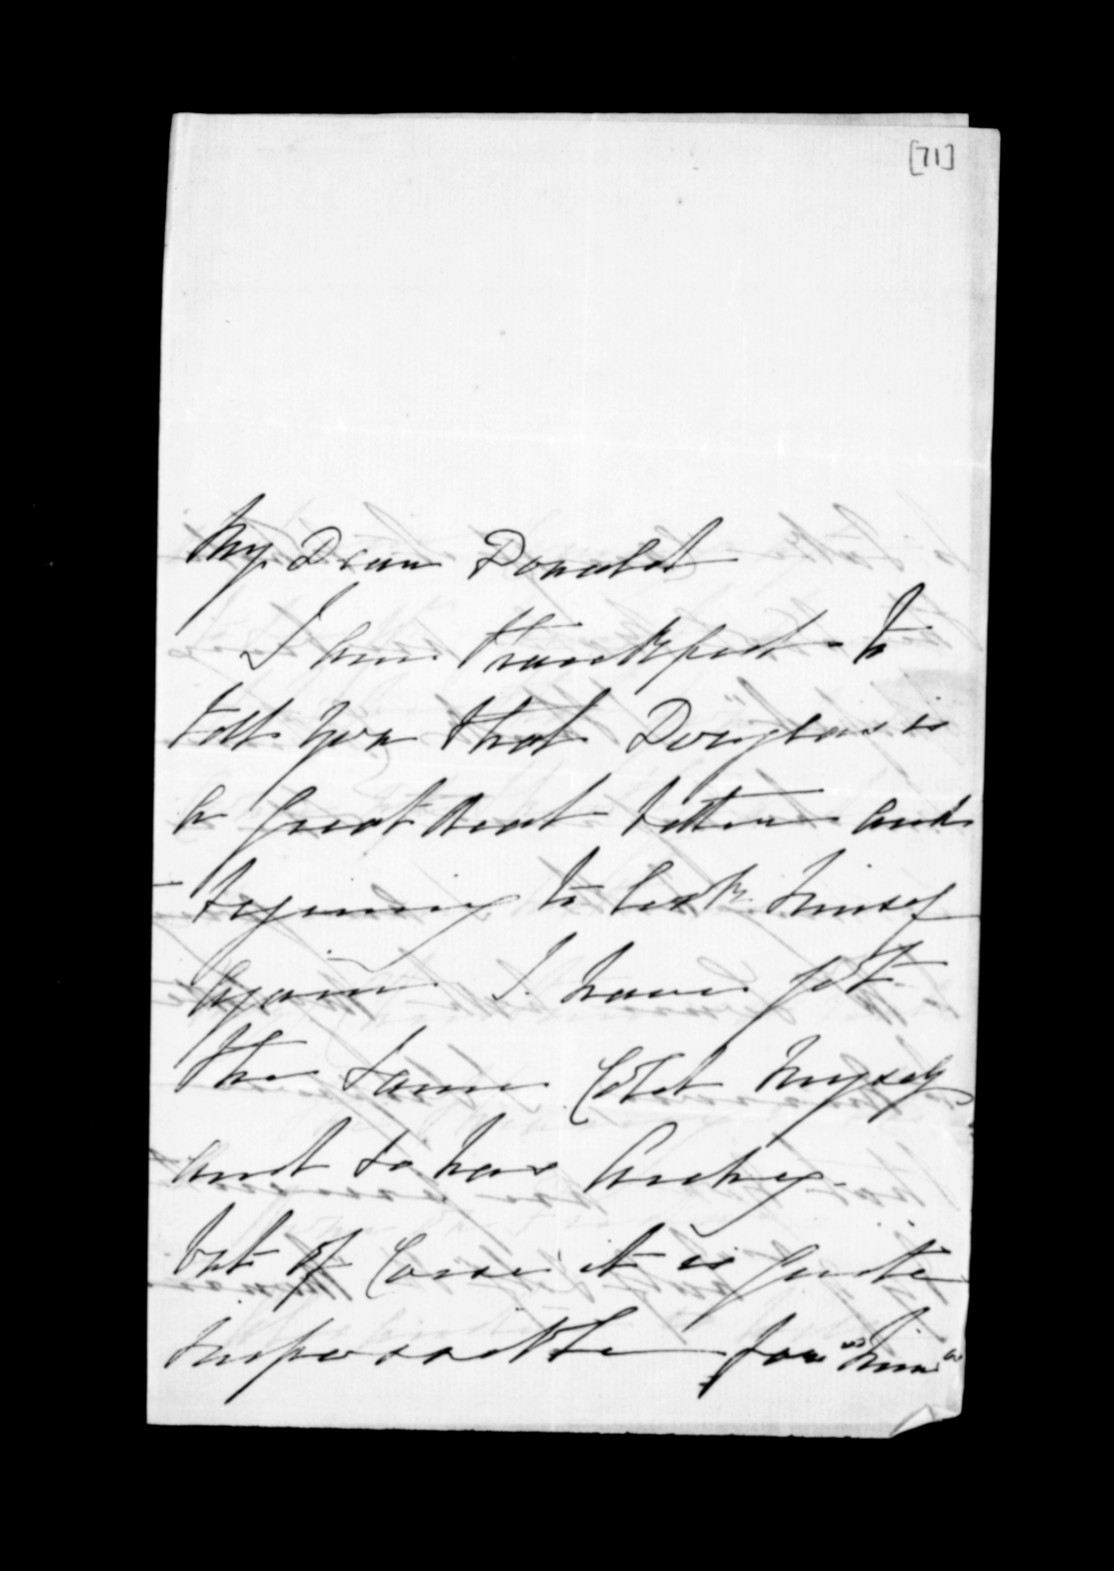 [71]
My Dear Donald
I am thankful to
tell you that Douglas is
a great deal better and
begining to look himself
again. I have got
the same Cold myself
and so has Andrey.
but of Corse it is quite
impossible for "him"